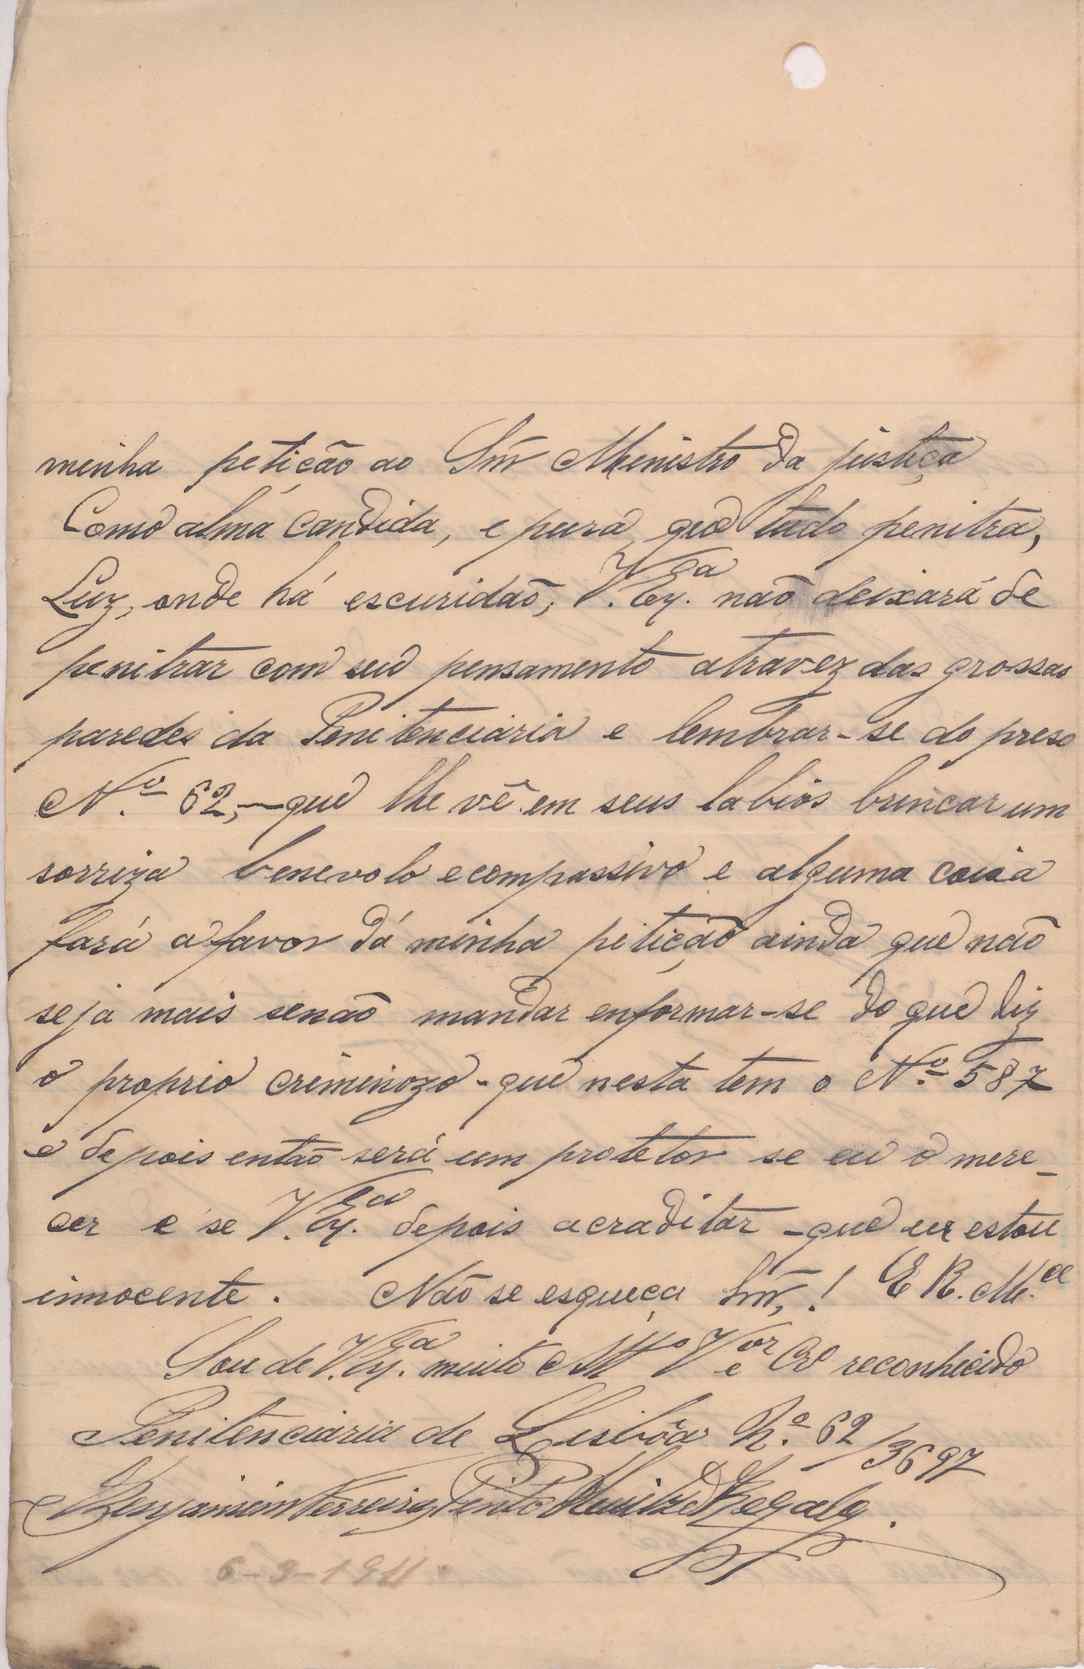 minha petição ao Snr Menistro da justiça
Como alma candida, e pura que tudo penitra,
Luz, onde há escuridaõ, V. Ex.ª naõ deixará de
penitrar com seu pensamento atravez das grossas
paredes da Penitenciaria e lembrar-se do preso
N.º 62,-que lhe vê em seus labios brincar um
sorriza benevolo e compassivo e alguma coisa
fará a favor dá minha petição ainda que não
seja mais senaõ mandar enformar-se do que diz
o proprio criminozo-que nesta tem o N.º 587
e depois entaõ será um protetor se eu o mere-
cer e se V. Ex.ª depois acraditar-que eu estou
innocente. Não se esqueça Snr,! E R. M.ce
Sou de V. Ex.ª muito Mto Vor e Cro reconhecido
Penitenciaria de Lisbôa N.º 62/3697
Benjamim Ferreira Pinto
6-3-1911